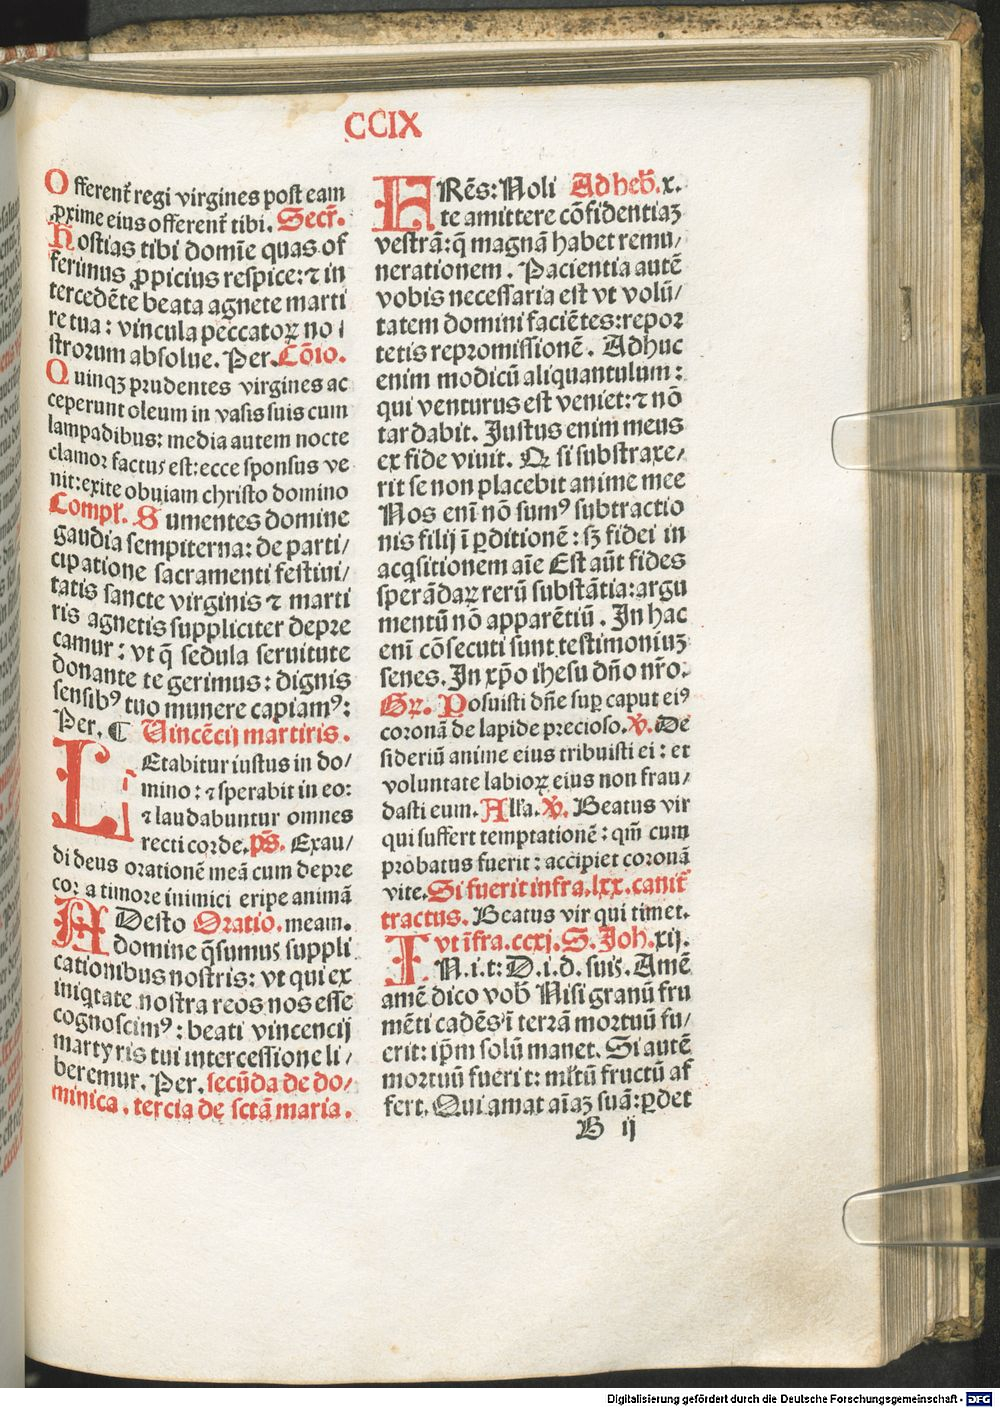 CCIX
Offerent̃ regi virgines post eam
ꝓxime eius offerent̃ tibi. Secr̃.
Hostias tibi domīe quas of
ferimus ꝓpicius respice: ⁊ in
tercedēte beata agnete marti
re tua : vincula peccatoꝝ no /
strorum absolue. Per. Cōio.
Quinqꝫ prudentes virgines ac
ceperunt oleum in vasis suis cum
lampadibus: media autem nocte
clamor factus est: ecce sponsus ve
nit: exite obuiam christo domino
Compl̃. Sumentes domine
gaudia sempiterna: de parti/
cipatione sacramenti festiui/
tatis sancte virginis ⁊ marti
ris agnetis suppliciter depre
camur: vt q̄ sedula seruitute
donante te gerimus: dignis
sensibꝰ tuo munere capiamꝰ:
Per. ¶ Uincēcij martiris.
LEtabitur iustus in do/
i mino: ⁊ sperabit in eo:
⁊ laudabuntur omnes
recti corde. p̄s. Exau/
di deus orationē meā cum depre
cor a timore inimici eripe animā
ADesto Oratio. meam.
domine q̄sumus suppli
cationibus nostris: vt qui ex
iniq̇tate nostra reos nos esse
cognoscimꝰ: beati vincencij
martyris tui intercessione li/
beremur. Per. secūda de do/
minica. tercia de sctā maria.
FRēs: Noli Ad heb̃. x.
te amittere cōfidentiaꝫ
vestrā: q̄ magnā habet remu/
nerationem. Pacientia autē
vobis necessaria est vt volū/
tatem domini faciētes: repor
tetis repromissionē. Adhuc
enim modicū aliquantulum:
qui venturus est veniet: ⁊ nō
tardabit. Justus enim meus
ex fide viuit. Ꝙ si substraxe/
rit se non placebit anime mee
Nos enī nō sumꝰ subtractio
nis filij ī ꝑditionē: sꝫ fidei in
acq̇sitionem aīe Est aūt fides
sperādaꝝ rerū substātia: argu
mentū nō apparētiū. In hac
enī cōsecuti sunt testimoniuꝫ
senes. In xp̄o ihesu dño nr̄o.
Gꝝ. Posuisti dñe suꝑ caput eiꝰ
coronā de lapide precioso. ℣. De
sideriū anime eius tribuisti ei: et
voluntate labioꝝ eius non frau/
dasti eum. All̃a. ℣. Beatus vir
qui suffert temptationē: qm̄ cum
probatus fuerit: accipiet coronā
vite. Si fuerit infra. lxx. canit̃
tractus. Beatus vir qui timet.
Tvt īfra. ccxj. S. Joh. xij.
N. i. t: D. i. d. suis. Amē
amē dico vob̃ Nisi granū fru
mēti cadēs ī terrā mortuū fu/
erit: ip̄m solū manet. Si autē
mortuū fuerit: ml̃tū fructū af
fert. Qui amat aīaꝫ suā: ꝑdet
B ij
Digitalisierung gefördert durch die Deutsche Forschungsgemeinschaft - DFG